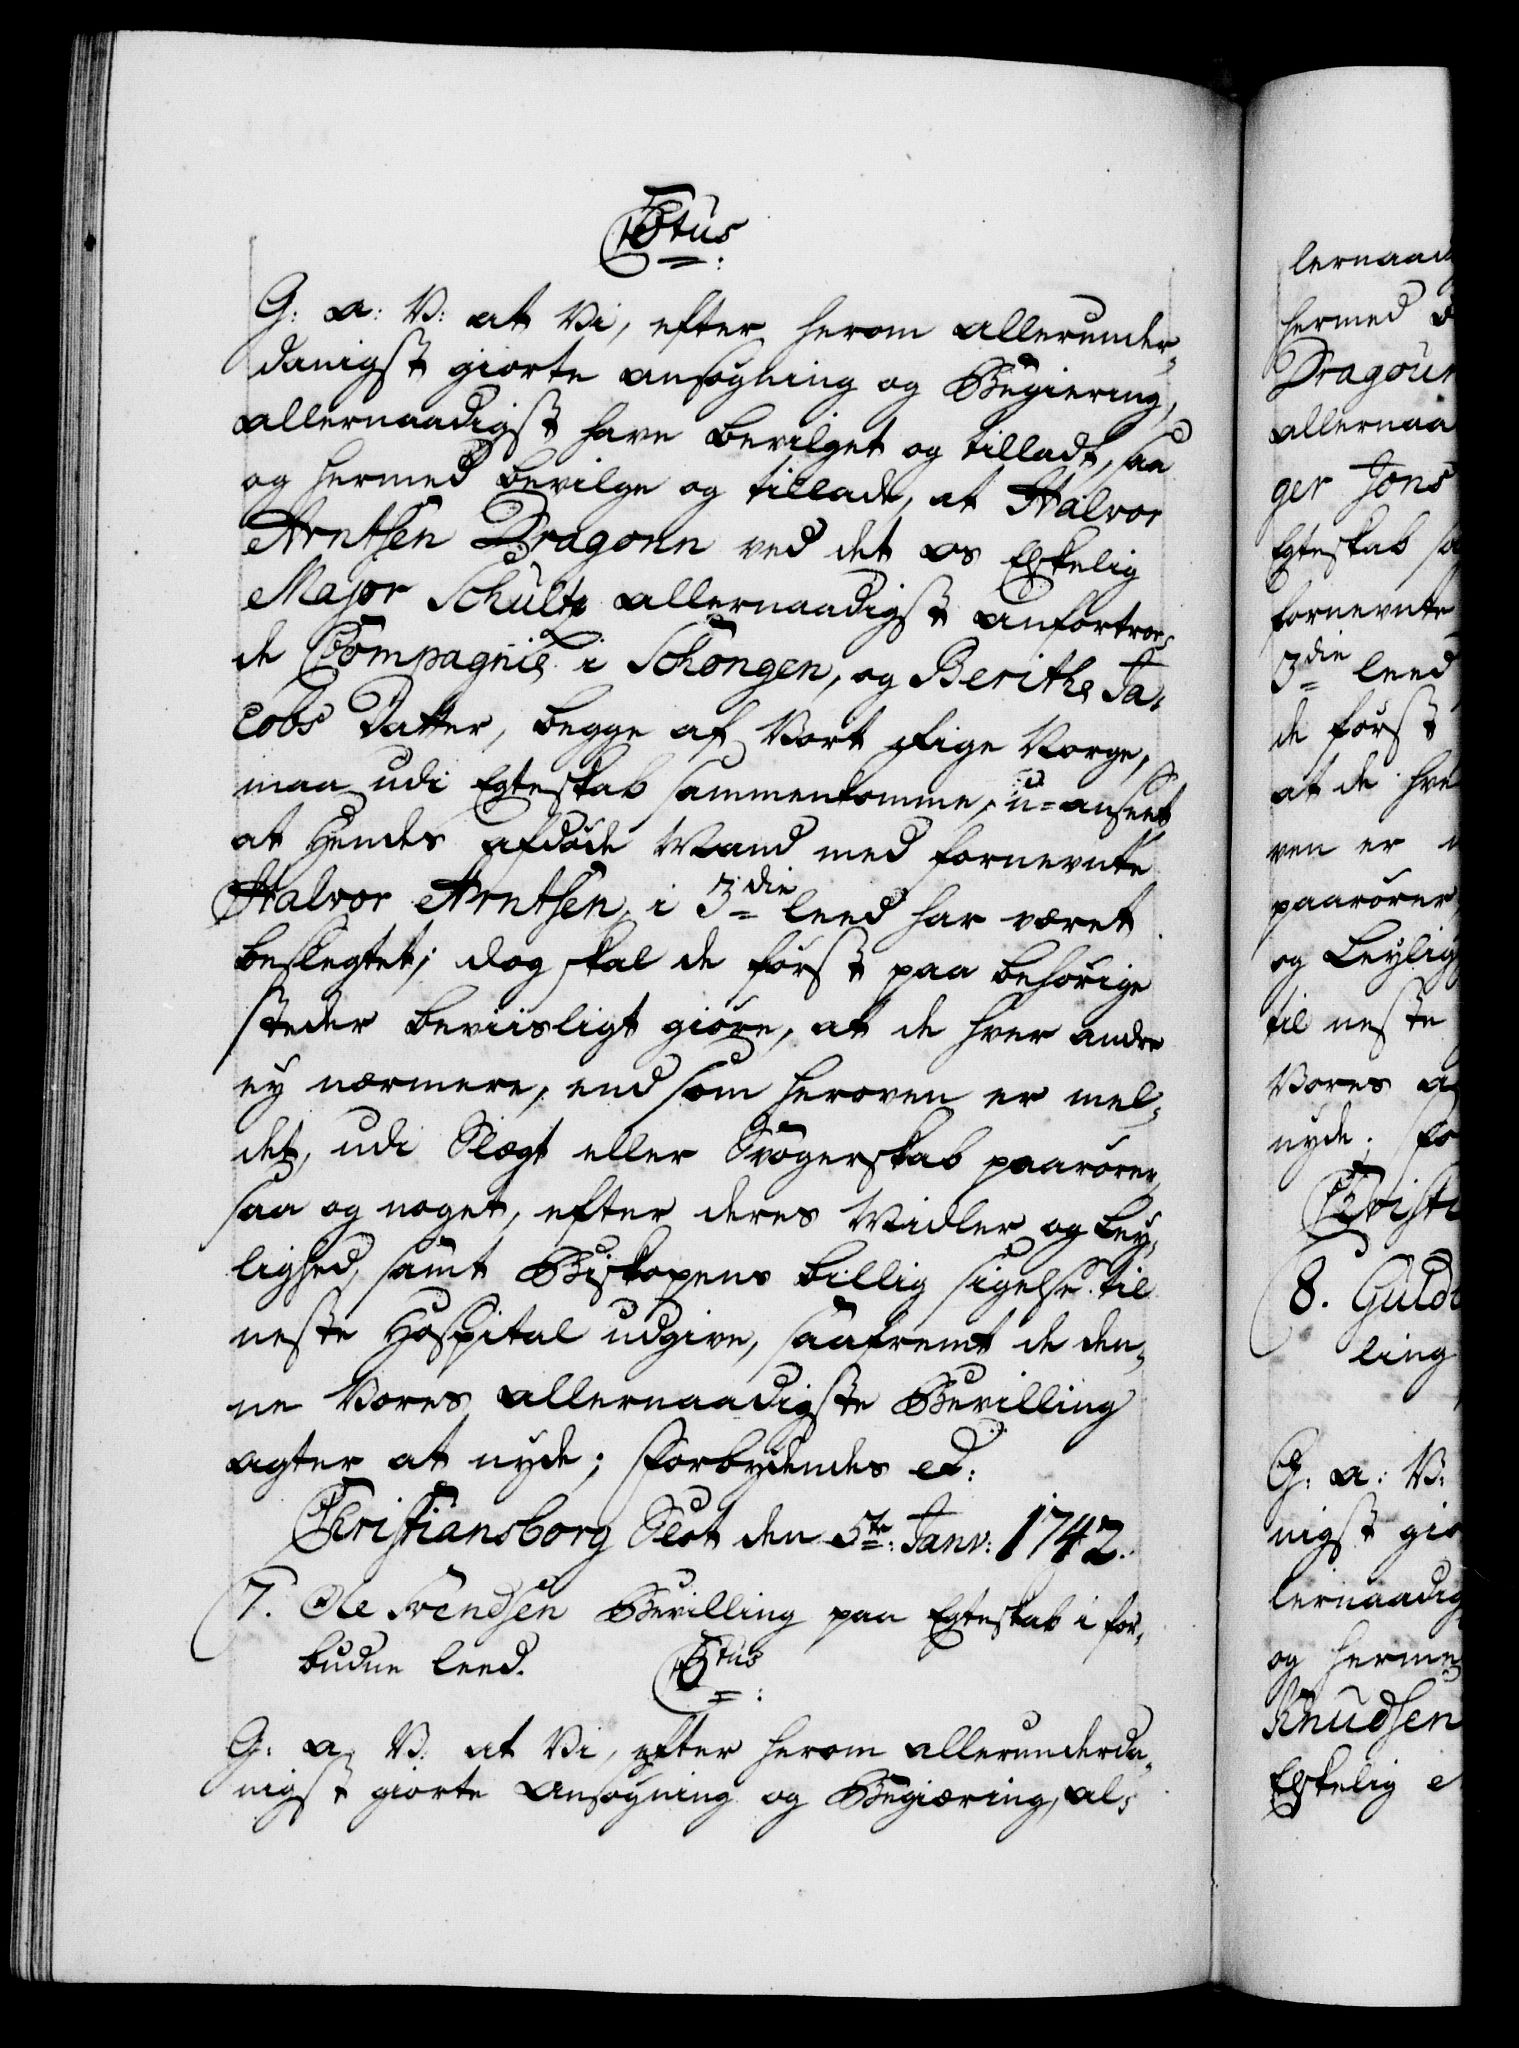 C6tus
G: a: V: at Vi, efter herom allerunder-
danigst giorte ansøgning og Begiering,
allernaadigst have bevilget og tilladt, saa
og hermed bevilge og tillade, at Halvor
Arntsen Dragoun ved det os Elskelig
Major Schultz allernaadigst anfortroe-
de Compagnie i Schongen, og Berithe Ja-
cobs Datter, begge af Vort Rige Norge,
maa udi Egteskab sammenkomme, u-anseet
at Hendes afdøde Mand med fornevnte
Halvor Arntsen, i 3die leed har været
beslegtet; dog skal de først paa behørige
steder beviisligt giøre, at de hver andre
ey nærmere, end som heroven er mel-
det, udi Slægt eller Svogerskab paarører,
saa og noget, efter deres Midler og Ley-
lighed, samt Biskopens billig sigelse til
neste Hospital udgive, saafremt de den-
ne Vores allernaadigste Bevilling
agter at nyde; Forbydendes et:
Christiansborg Slot den 5te: Janv: 1742.
7. Ole Svendsen Bevilling paa Egteskab i for-
budne leed.
C6tus
G: a: V: at Vi, efter herom allerunderda-
nigst giorte Ansøgning og Begiæring, al-
lernaad
hermed
Dragoun
allernaa
ger Jons
Egteskab
fornevnte
3die leed
de først
at de hve
ven er
paarører
og Leylig
til neste
Vores a
nyde. Fo
Christi
8. Guld
ling
G: a: V:
nigst gio
lernaadig
og herme
Knudsen
Elskelig